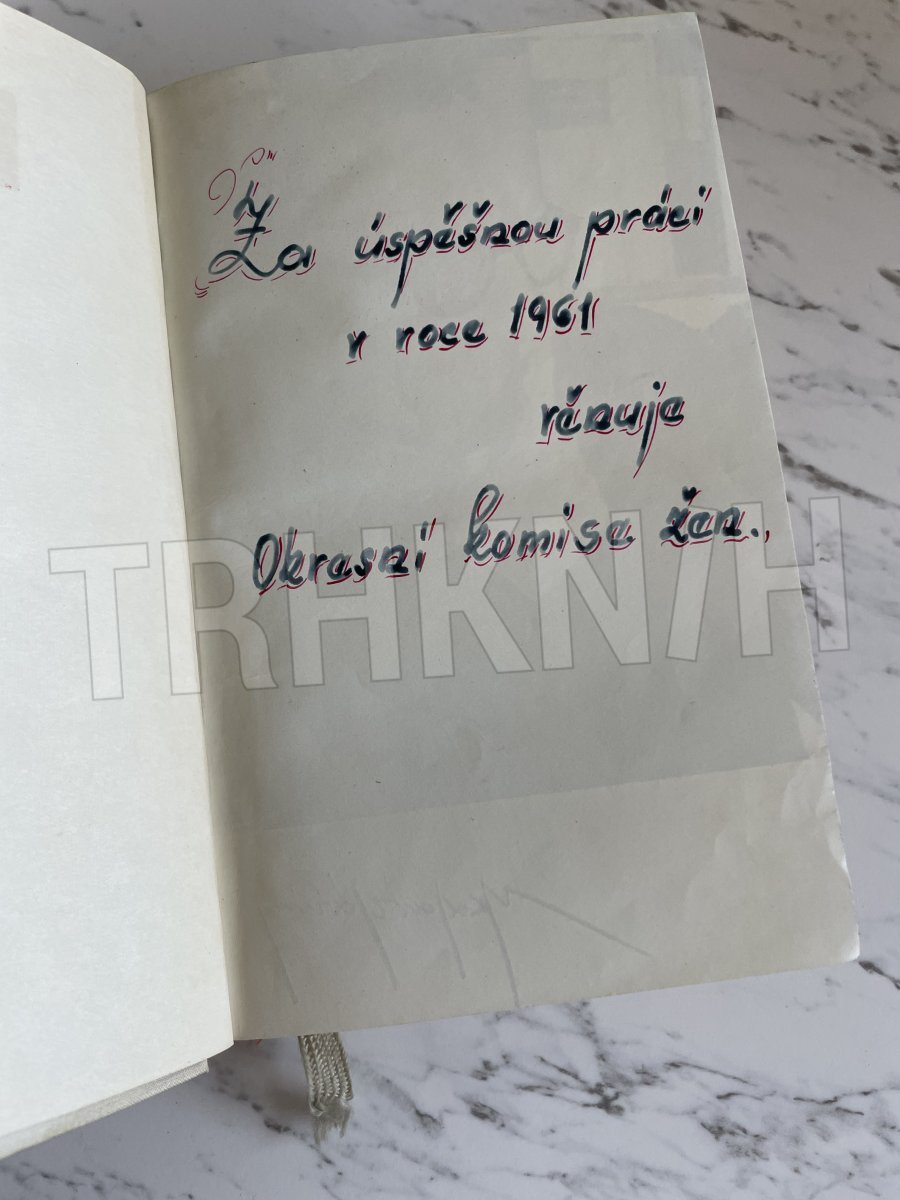 Za úspěšnou práci
v roce 1961
věnuje
Okrasní komise žen.
TRHKNIH